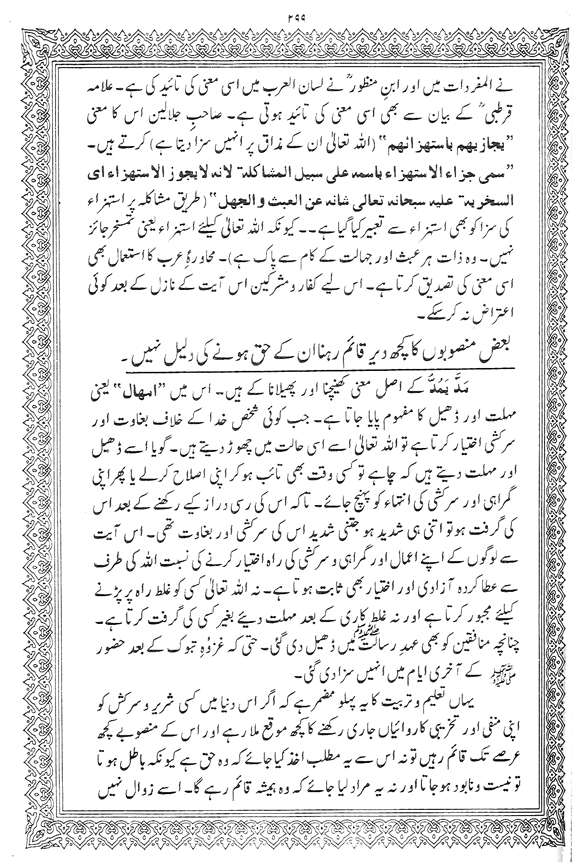 ۲۹۹
نے المفردات میں اور ابنِ منظورؒ نے لسان العرب میں اسی معنی کی تائید کی ہے۔ علامہ
قرطبیؒ کے بیان سے بھی اسی معنی کی تائید ہوتی ہے۔ صاحبِ جلالین اس کا معنی
”یجازیھم باستھزائھم“ (اللہ تعالیٰ ان کے مذاق پر انہیں سزا دیتا ہے) کرتے ہیں۔
”سمی جزاء الاستھزاء باسمہ علی سبیل المشاکلۃ لانہ لایجوز الاستھزاء ای
السخریۃ علیہ سبحانہ تعالی شانہ عن العبث والجھل“ (طریق مشاکلہ پر استہزاء
کی سزا کو بھی استہزاء سے تعبیر کیا گیا ہے۔۔ کیونکہ اللہ تعالیٰ کیلئے استہزاء یعنی تمسخر جائز
نہیں۔ وہ ذات ہر عبث اور جہالت کے کام سے پاک ہے)۔ محاورۂ عرب کا استعمال بھی
اسی معنی کی تصدیق کرتا ہے۔ اس لیے کفار و مشرکین اس آیت کے نازل کے بعد کوئی
اعتراض نہ کر سکے۔
بعض منصوبوں کا کچھ دیر قائم رہنا ان کے حق ہونے کی دلیل نہیں۔
مَدَّ یَمُدُّ کے اصل معنی کھینچنا اور پھیلانا کے ہیں۔ اس میں ”امھال“ یعنی
مہلت اور ڈھیل کا مفہوم پایا جاتا ہے۔ جب کوئی شخص خدا کے خلاف بغاوت اور
سرکشی اختیار کرتا ہے تو اللہ تعالیٰ اسے اسی حالت میں چھوڑ دیتے ہیں۔ گویا اسے ڈھیل
اور مہلت دیتے ہیں کہ چاہے تو کسی وقت بھی تائب ہو کر اپنی اصلاح کرلے یا پھر اپنی
گمراہی اور سرکشی کی انتہاء کو پہنچ جائے۔ تاکہ اس کی رسی دراز کیے رکھنے کے بعد اس
کی گرفت ہو تو اتنی ہی شدید ہو جتنی شدید اس کی سرکشی اور بغاوت تھی۔ اس آیت
سے لوگوں کے اپنے اعمال اور گمراہی و سرکشی کی راہ اختیار کرنے کی نسبت اللہ کی طرف
سے عطا کردہ آزادی اور اختیار بھی ثابت ہوتا ہے۔ نہ اللہ تعالیٰ کسی کو غلط راہ پر پڑنے
کیلئے مجبور کرتا ہے اور نہ غلط کاری کے بعد مہلت دیئے بغیر کسی کی گرفت کرتا ہے۔
چنانچہ منافقین کو بھی عہدِ رسالت ﷺ میں ڈھیل دی گئی۔ حتی کہ غزوۂ تبوک کے بعد حضور
ﷺ کے آخری ایام میں انہیں سزا دی گئی۔
یہاں تعلیم و تربیت کا یہ پہلو مضمر ہے کہ اگر اس دنیا میں کسی شریر و سرکش کو
اپنی منفی اور تخریبی کاروائیاں جاری رکھنے کا کچھ موقع ملا رہے اور اس کے منصوبے کچھ
عرصے تک قائم رہیں تو نہ اس سے یہ مطلب اخذ کیا جائے کہ وہ حق ہے کیونکہ باطل ہوتا
تو نیست و نابود ہو جاتا اور نہ یہ مراد لیا جائے کہ وہ ہمیشہ قائم رہے گا۔ اسے زوال نہیں